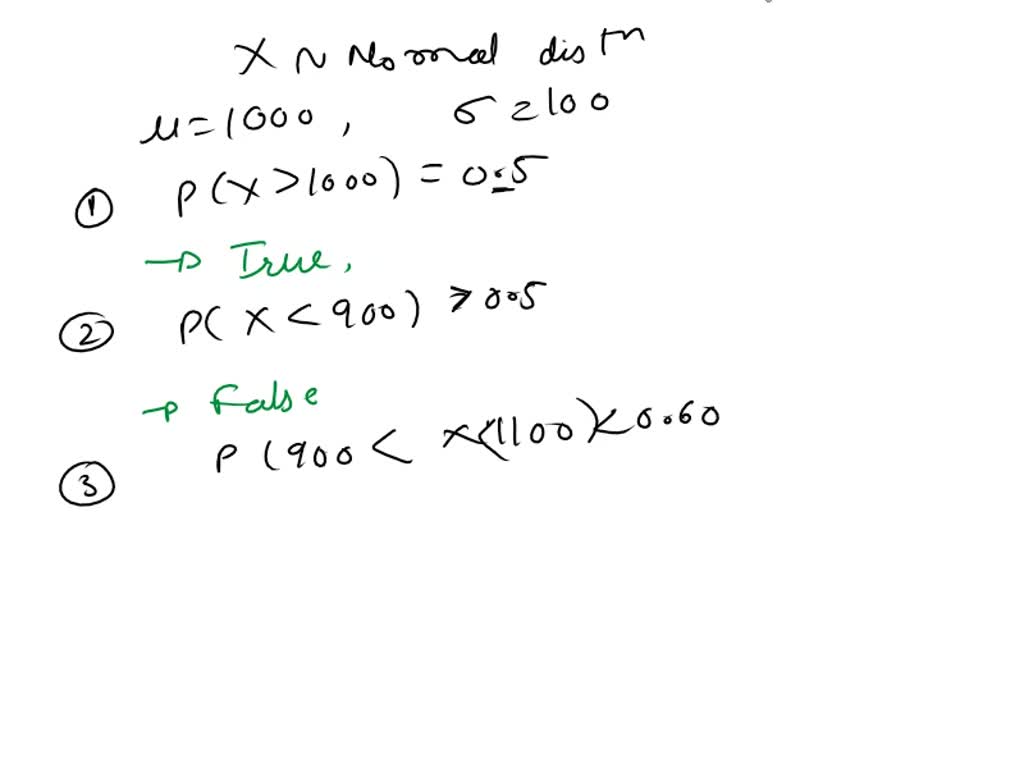 X ~ Normal distn
μ=1000, σ=100
① P(X>1000) = 0.5
→ True,
② P(X<900) ≥0.5
→ False
③ P(900 < X<1100)<0.60